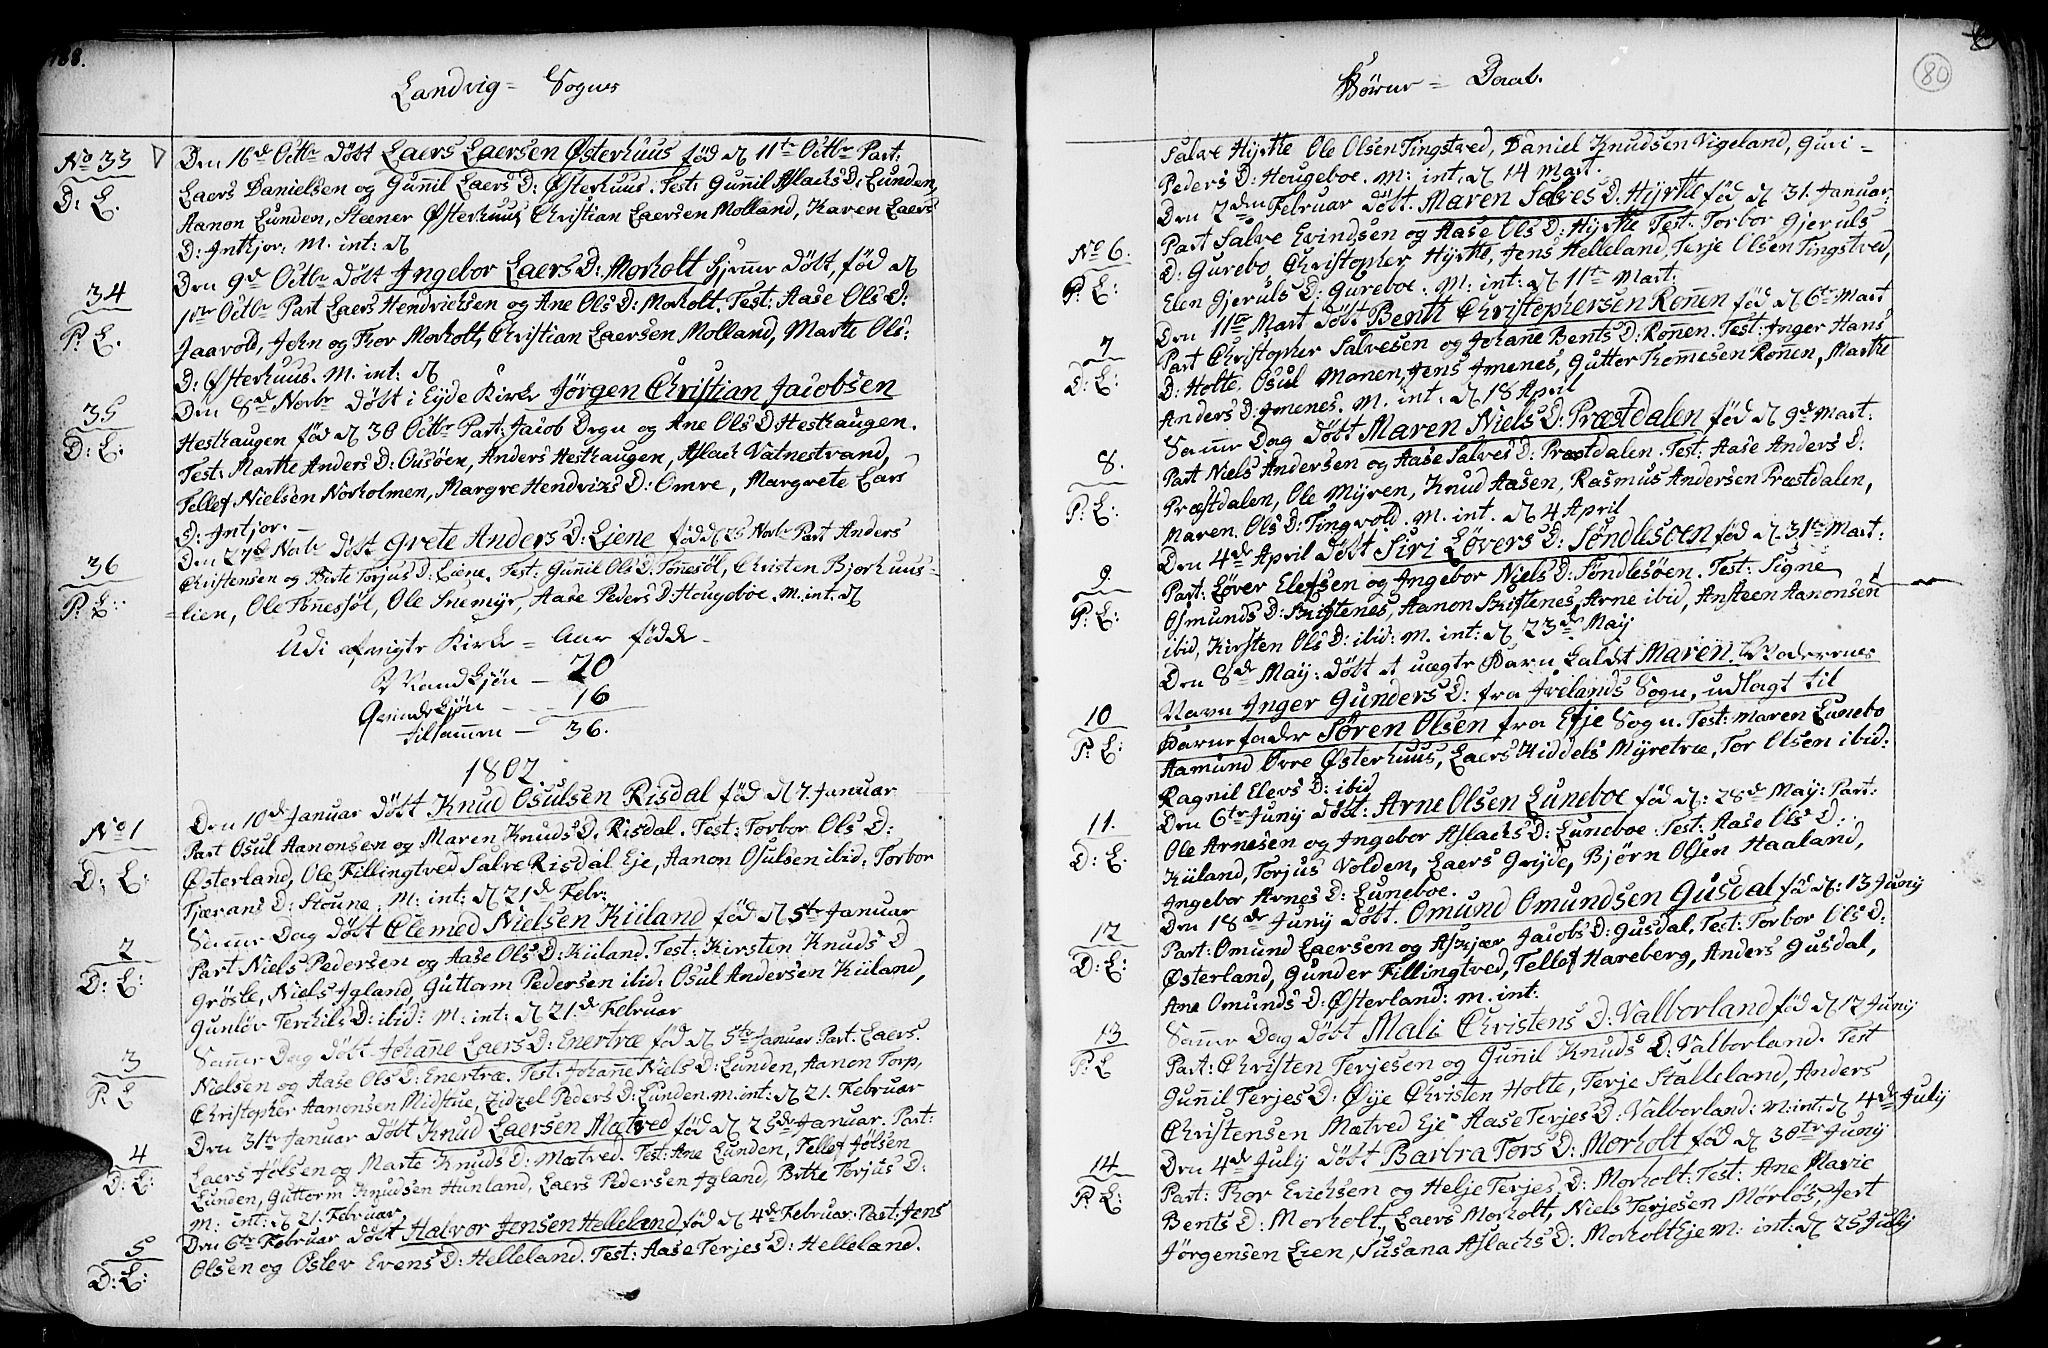 188.
Landvig = Sognes
No 33
D: E.
Den 16de Octbr døbt Laers Laersen Østerhuus fød d 11te Octbr Part:
Laers Danielsen og Guñil Laers D: Østerhuus. Test: Guñil Aslachs D: Lunden,
Aanon Lunden, Steener Østerhuus, Christian Laersen Molland, Karen Laers
D: Inthjor: M. int: d
34
P: E.
Den 9de Octbr døbt Ingebor Laers D: Morholt hjemme døbt, fød d
1ste Octbr Part Laers Hendrichsen og Ane Ols D: Morholt. Test: Aase Ols D:
Jaavold, John og Thor Morholt, Christian Laersen Molland, Marthe Ols:
D: Østerhuus. M. int: d
35
D: E:
Den 8de Novbr døbt i Eyde Kirke Jørgen Christian Jacobsen
Hesthaugen fød d 30 Octbr Part: Jacob Degn og Ane Ols D: Hesthaugen.
Test: Marthe Anders D: Ousøen, Anders Hesthaugen, Aslach Vatnestrand,
Tellef Nielsen Norholmen, Margre Hendrixs D: Omre, Margrete Lars
D: Intjor.
36
P: E:
Den 27de Novbr døbt Grete Anders D: Liene fød d 25 Novbr Part Anders
Christensen og Birte Torjus D: Liene. Test: Guñil Ols D: Tøñesøl, Christen Bjorhuus=
=lien, Ole Tøñesøl, Ole Snemyr, Aase Peders D: Hougeboe. M. int. d
Udi afvigte Kirke = Aar fødde
Mandkjøn — 20
Qvindekjøn — 16
tilsamen — 36.
1802
No 1
D: E:
Den 10de Januar døbt Knud Osulsen Risdal fød d 7. Januar
Part Osul Aanonsen og Maren Knuds D. Risdal. Test: Torbor Ols D:
Østerland, Ole Fillingtved Salve Risdal Eje, Aanon Osulsen ibid: Torbor
Tjærans D: Stoune. M: int: d 21de Febr:
2
D: E:
Same Dag døbt Clemed Nielsen Kiiland fød d 5te Januar
Part Niels Pedersen og Aase Ols D: Kiiland. Test: Kirsten Knuds D
Grøsle, Niels Igland, Guttorm Pedersen ibid: Osul Andersen Kiiland,
Gunløv Terchils D: ibid: M: int: d 21de Februar
3
P. E
Same Dag døbt Johañe Laers D: Enertræ fød d 5te Januar. Part. Laers.
Nielsen og Aase Ols D: Enertræ. Test. Johañe Niels D: Lunden, Aanon Torp,
Christopher Aanonsen Midstue, Zidzel Peders D: Lunden. M. int: d 21. Februar
4
D: E:
Den 31te Januar døbt Knud Laersen Mætved fød d 25de Januar. Part:
Laers Jølsen og Marte Knuds D: Mætved. Test: Ane Lunden, Tellef Jølsen
Lunden, Guttorm Knudsen Hunland, Laers Pedersen Igland, Birthe Torjus D:
M: int: d 21. Februar.
5
D: E:
Den 6te Februar døbt Halvor Jensen Helleland, fød d 4de Februar. Part: Jens
Olsen og Oslev Evens D: Helleland. Test: Aase Terjes D: Helleland.
Børne = Daab.
80
Salve Hyrthe Ole Olsen Tingstved, Daniel Knudsen Vigeland, Guri=
Peders D: Hougeboe. M: int. d 14 Mart.
No 6.
P: E:
Den 2den Februar døbt. Maren Salves D. Hyrthe fød d 31. Januar.
Part Salve Evindsen og Aase Ols D: Hyrthe Test: Torbor Gjeruls
D: Gurebo, Christopher Hyrthe, Jens Helleland, Terje Olsen Tingstved,
Elen Gjeruls D: Gureboe. M: int: d 11te Mart.
7
D: E:
Den 11te Mart døbt Benth Christophersen Roñen fød d 6te Mart
Part Christopher Salvesen og Johañe Bents D: Roñen. Test: Inger Hans
D: Holte. Osul Monen, Jens Imenes, Gutter Thomesen Roñen, Marthe
Anders D: Imenes. M. int. d 18 April
8.
P: E:
Same Dag døbt Maren Niels D: Præstdalen fød d 9de Mart:
Part Niels Andersen og Aase Salves D: Præstdalen. Test: Aase Anders D.
Præstdalen, Ole Myren, Knud Aasen, Rasmus Andersen Præstdalen,
Maren Ols D: Tingvold. M. int. d 4 April
9.
P: E:
Den 4de April døbt Siri Løvers D: Søndlesøen fød d 31te Mart:
Part: Løver Elefsen og Ingebor Niels D: Søndlesøen. Test: Signe
Osmunds D: Bristenes, Aanon Bristenes, Arne ibid, Ansteen Aanonsen
ibid, Kirsten Ols D: ibid: M. int: d 23de May
10
P: E:
Den 8de May: døbt et uægte Barn kaldet Maren. Moderenes
Navn Inger Gunders D: fra Irelands Sogn, udlagt til
Barnefader Søren Olsen fra Efje Sogn. Test: Maren Lunebo
Aamund Øvre Østerhuus, Laers Kiddels Myretræ, Tor Olsen ibid:
Ragnil Elevs D: ibid
11.
D: E.
Den 6te Juny døbt: Arne Olsen Luneboe fød d: 28de May: Part:
Ole Arnesen og Ingebor Aslachs D: Luneboe. Test: Aase Ols D:
Kiiland, Torjus Volden, Laers Gryde, Bjørn Olsen Haaland,
Ingebor Arnes D: Luneboe.
12
D: E:
Den 18de Juny døbt. Omund Omundsen Gusdal fød d: 13 Juny
Part: Omund Laersen og Askjær Jacobs D: Gusdal, Test: Torbor Ols D:
Østerland, Gunder Fillingtved, Tellef Hareberg, Anders Gusdal,
Ane Omunds D: Østerland: M. int:
13
P: E
Same Dag døbt Mali Christens D: Valborland fød d 12 Juny
Part: Christen Terjesen og Guñil Knuds D: Valborland. Test
Guñil Terjes D: Øye Christen Holte, Terje Stalleland, Anders
Christensen Mætved Eje Aase Terjes D: Valborland: M: int: d 4de July
14
P: E:
Den 4de July døbt Barbra Tors D: Morholt fød d 30te Juny
Part: Thor Erichsen og Helje Terjes D: Morholt: Test: Ane Marie
Bents D: Morholt, Laers Morholt, Niels Terjesen Mørløs, Jert
Jørgensen Lien, Susana Aslachs D: Morholt Eje M: int: d 25 July